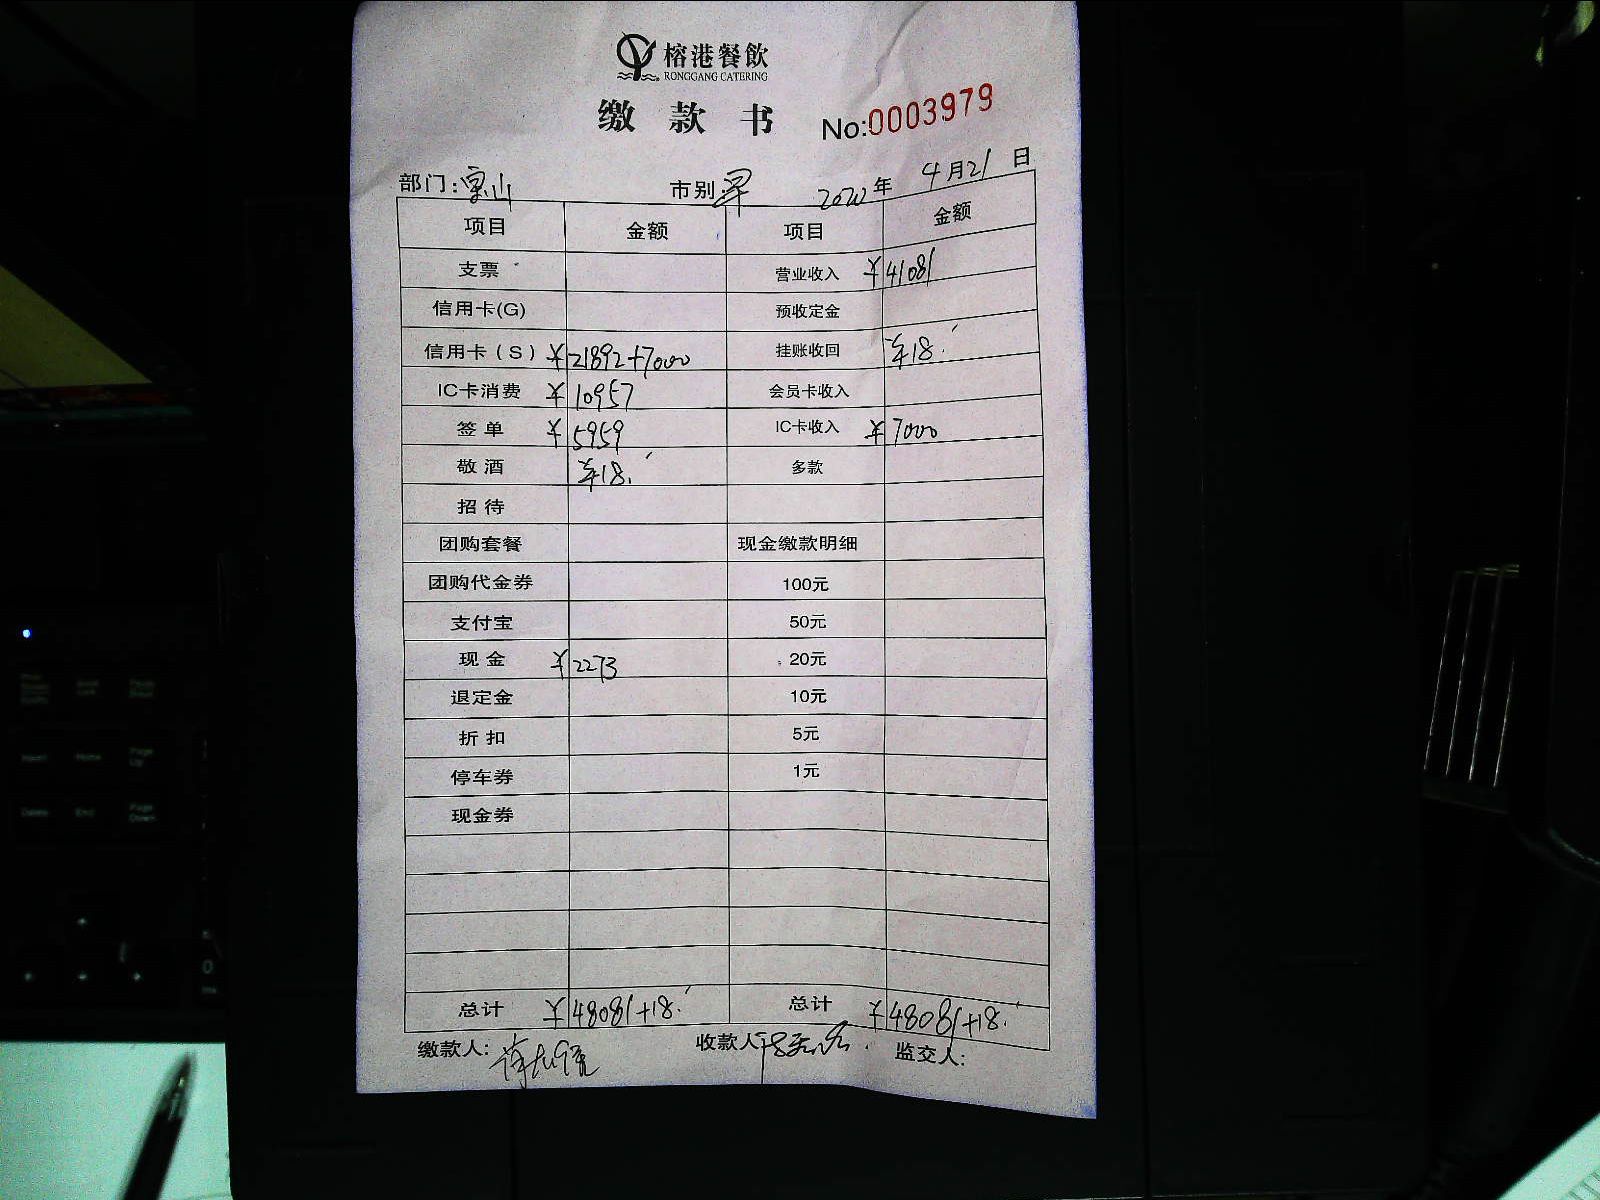 榕港餐飲
RONGGANG CATERING
缴款书 No:0003979
部门: 市别:早 2022年4月21日
项目 金额 项目 金额
支票 营业收入 ¥41081
信用卡(G) 预收定金
信用卡(S) ¥21892+7000 挂账收回 18.
IC卡消费 ¥10957 会员卡收入
签单 ¥5959 IC卡收入 ¥7000
敬酒 18. 多款
招待
团购套餐 现金缴款明细
团购代金券 100元
支付宝 50元
现金 ¥2273 20元
退定金 10元
折扣 5元
停车券 1元
现金券
总计 ¥48081+18. 总计 ¥48081+18.
缴款人: 收款人 监交人: